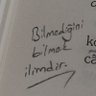 Bilmediğini
bilmek
ilimdir.